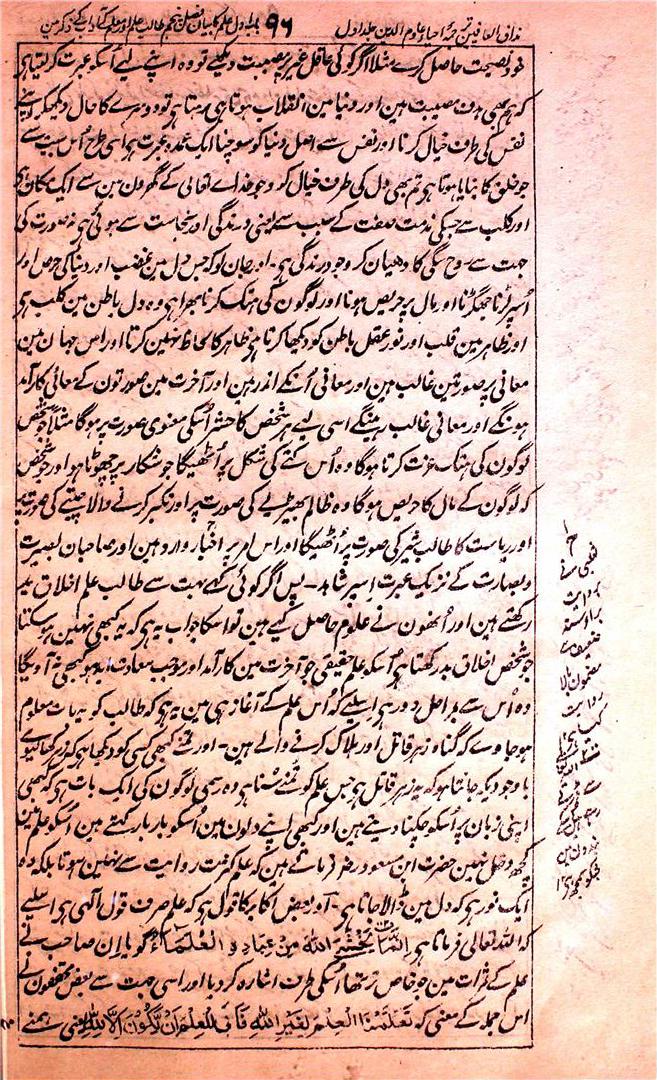 مذاق العارفین ترجمہ احیاء علوم الدین جلد اول ۹۶ باب اول علم کا بیان فصل پنجم طالب علم اور معلم کے آداب کے ذکر مین
خود نصیحت حاصل کرے مثلاً اگر کوئی عاقل غیر پر مصیبت دیکھے تو وہ اپنے لیے اُسکو عبرت کر لیتا ہی
کہ ہم بھی ہدف مصیبت ہین اور دنیا مین انقلاب ہوتا ہی رہتا ہی تو دوسرے کا حال دیکھکر اپنے
نفس کی طرف خیال کرنا اور نفس سے اصل دنیا کو سوچنا ایک عمدہ عبرت ہی اسی طرح اُس سبب سے
جو خلق کا بنایا ہوتا ہی تم بھی دل کی طرف خیال کرو جو خداے تعالی کے گھرون مین سے ایک مکان ہی
اور کلب سے جسکی مذمت صفت کے سبب سے یعنی درندگی اور نجاست سے ہوئی ہی نہ صورت کی
جہت سے روح سگی کا دھیان کرو جو درندگی ہی۔ اور جان لو کہ جس دل مین غضب اور دنیا کی حرص اور
اُسپر لڑنا جھگڑنا اور مال پر حریص ہونا اور لوگون کی ہتک کرنا بھرا ہی وہ دل باطن مین کلب ہی
اور ظاہر مین قلب اور نور عقل باطن کو دیکھا کرتا ہی ظاہر کا لحاظ نہین کرتا اور اس جہان مین
معانی پر صورتین غالب ہین اور معانی اُنکے اندر ہین اور آخرت مین صورتون کے معانی کارآمد
ہونگے اور معانی غالب رہینگے اسی لیے ہر شخص کا حشر اُسکی معنوی صورت پر ہوگا مثلاً جو شخص
لوگون کی ہتک عزت کرتا ہوگا وہ اُس کتے کی شکل پر اُٹھیگا جو شکار پر چھوٹا ہو اور جو شخص
کہ لوگون کے مال کا حریص ہوگا وہ ظالم بھیڑیے کی صورت پر اور تکبر کرنے والا چیتے کی صورت پر
اور ریاست کا طالب شیر کی صورت پر اُٹھیگا اور اس امر پر اخبار وارد ہین اور صاحبان بصیرت
و بصارت کے نزدیک عبرت اسپر شاہد۔ پس اگر کوئی کہے بہت سے طالب علم اخلاق بد
رکھتے ہین اور اُنھون نے علوم حاصل کیے ہین تو اسکا جواب یہ ہی کہ یہ کبھی نہین ہوسکتا
جو شخص اخلاق بد رکھتا ہی اُسکو علم حقیقی جو آخرت مین کارآمد اور موجب سعادت ابد ہو کبھی نہ آویگا
وہ اُس سے بمراحل دور ہی اسلیے کہ اُس علم کے آغاز ہی مین یہ ہی کہ طالب کو یہ بات معلوم
ہو جاوے کہ گناہ زہر قاتل اور ہلاک کرنے والے ہین۔ اور تمنے کبھی کسی کو دیکھا ہی کہ زہر کھالیوے
باوجودیکہ جانتا ہو کہ یہ زہر قاتل ہی جس علم کو تمنے سنا ہی وہ رسمی لوگون کی ایک بات ہی کہ کبھی
اپنی زبان پر اُسکو چپکا دیتے ہین اور کبھی اپنے دلون مین اُسکو بار بار کہتے ہین اُسکو علم مین
کچھ دخل نہین حضرت ابن مسعود رضہ فرماتے ہین کہ علم کثرت روایت سے نہین ہوتا بلکہ وہ
ایک نور ہی کہ دل مین ڈالا جاتا ہی۔ اور بعض اکابر کا قول ہی کہ علم صرف خوف الٰہی ہی اسلیے
کہ اللہ تعالی فرماتا ہی اِنَّمَا یَخْشَی اللّٰهَ مِنْ عِبَادِهِ الْعُلَمَاءُ گویا ان صاحب نے
علم کے ثمرات مین جو خاص تر تھا اُسکی طرف اشارہ کر دیا اور اسی جہت سے بعض محققون نے
اس جملہ کے معنی کہ تَعَلَّمْنَا الْعِلْمَ لِغَیْرِ اللّٰهِ فَاَبَی الْعِلْمُ اَنْ یَّکُوْنَ اِلَّا لِلّٰهِ یعنی ہمنے
ثعلبی نے
بروایت
براء بسند
ضعیف سے
مضمون بالا
روایت
کیا ہی